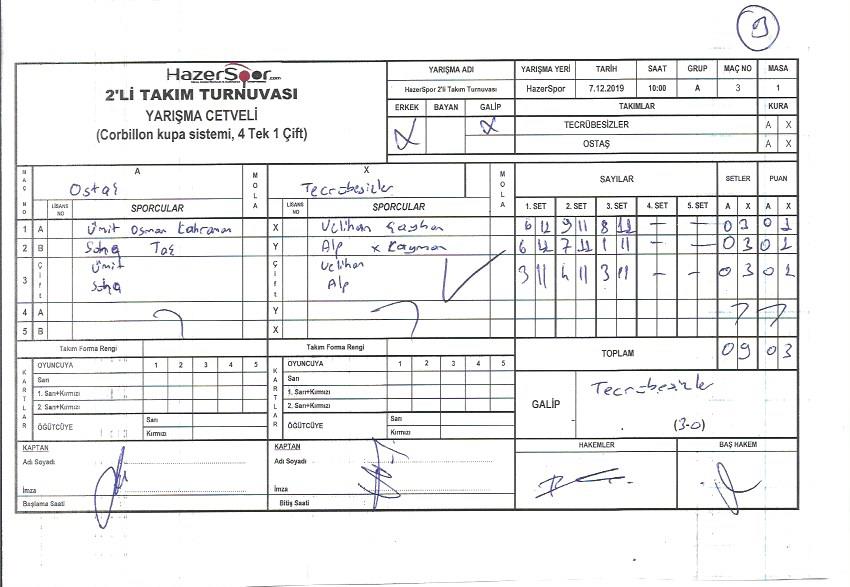 9
HazerSpor.com
2'Lİ TAKIM TURNUVASI
YARIŞMA CETVELİ
(Corbillon kupa sistemi, 4 Tek 1 Çift)
YARIŞMA ADI YARIŞMA YERİ TARİH SAAT GRUP MAÇ NO MASA
HazerSpor 2'li Takım Turnuvası HazerSpor 7.12.2019 10:00 A 3 1
ERKEK BAYAN GALİP TAKIMLAR KURA
X X TECRÜBESİZLER A X
OSTAŞ A X
MAÇ NO A MOLA X MOLA SAYILAR SETLER PUAN
Ostaş Tecrübesizler
LİSANS NO SPORCULAR LİSANS NO SPORCULAR 1. SET 2. SET 3. SET 4. SET 5. SET A X A X
1 A Ümit Osman Kahraman X Velihan 6 11 9 11 8 11 – – 0 3 0 1
2 B Taş Y Alp Kayman 6 11 7 11 1 11 – – 0 3 0 1
3 Çift Ümit Çift Velihan 3 11 4 11 3 11 – – 0 3 0 1
Alp
4 A Y
5 B X
Takım Forma Rengi Takım Forma Rengi TOPLAM 0 9 0 3
KARTLAR OYUNCUYA 1 2 3 4 5 KARTLAR OYUNCUYA 1 2 3 4 5
Sarı Sarı
1. Sarı+Kırmızı 1. Sarı+Kırmızı
2. Sarı+Kırmızı 2. Sarı+Kırmızı
GALİP Tecrübesizler
(3-0)
ÖĞÜTCÜYE Sarı ÖĞÜTCÜYE Sarı
Kırmızı Kırmızı
KAPTAN KAPTAN HAKEMLER BAŞ HAKEM
Adı Soyadı Adı Soyadı
İmza İmza
Başlama Saati Bitiş Saati